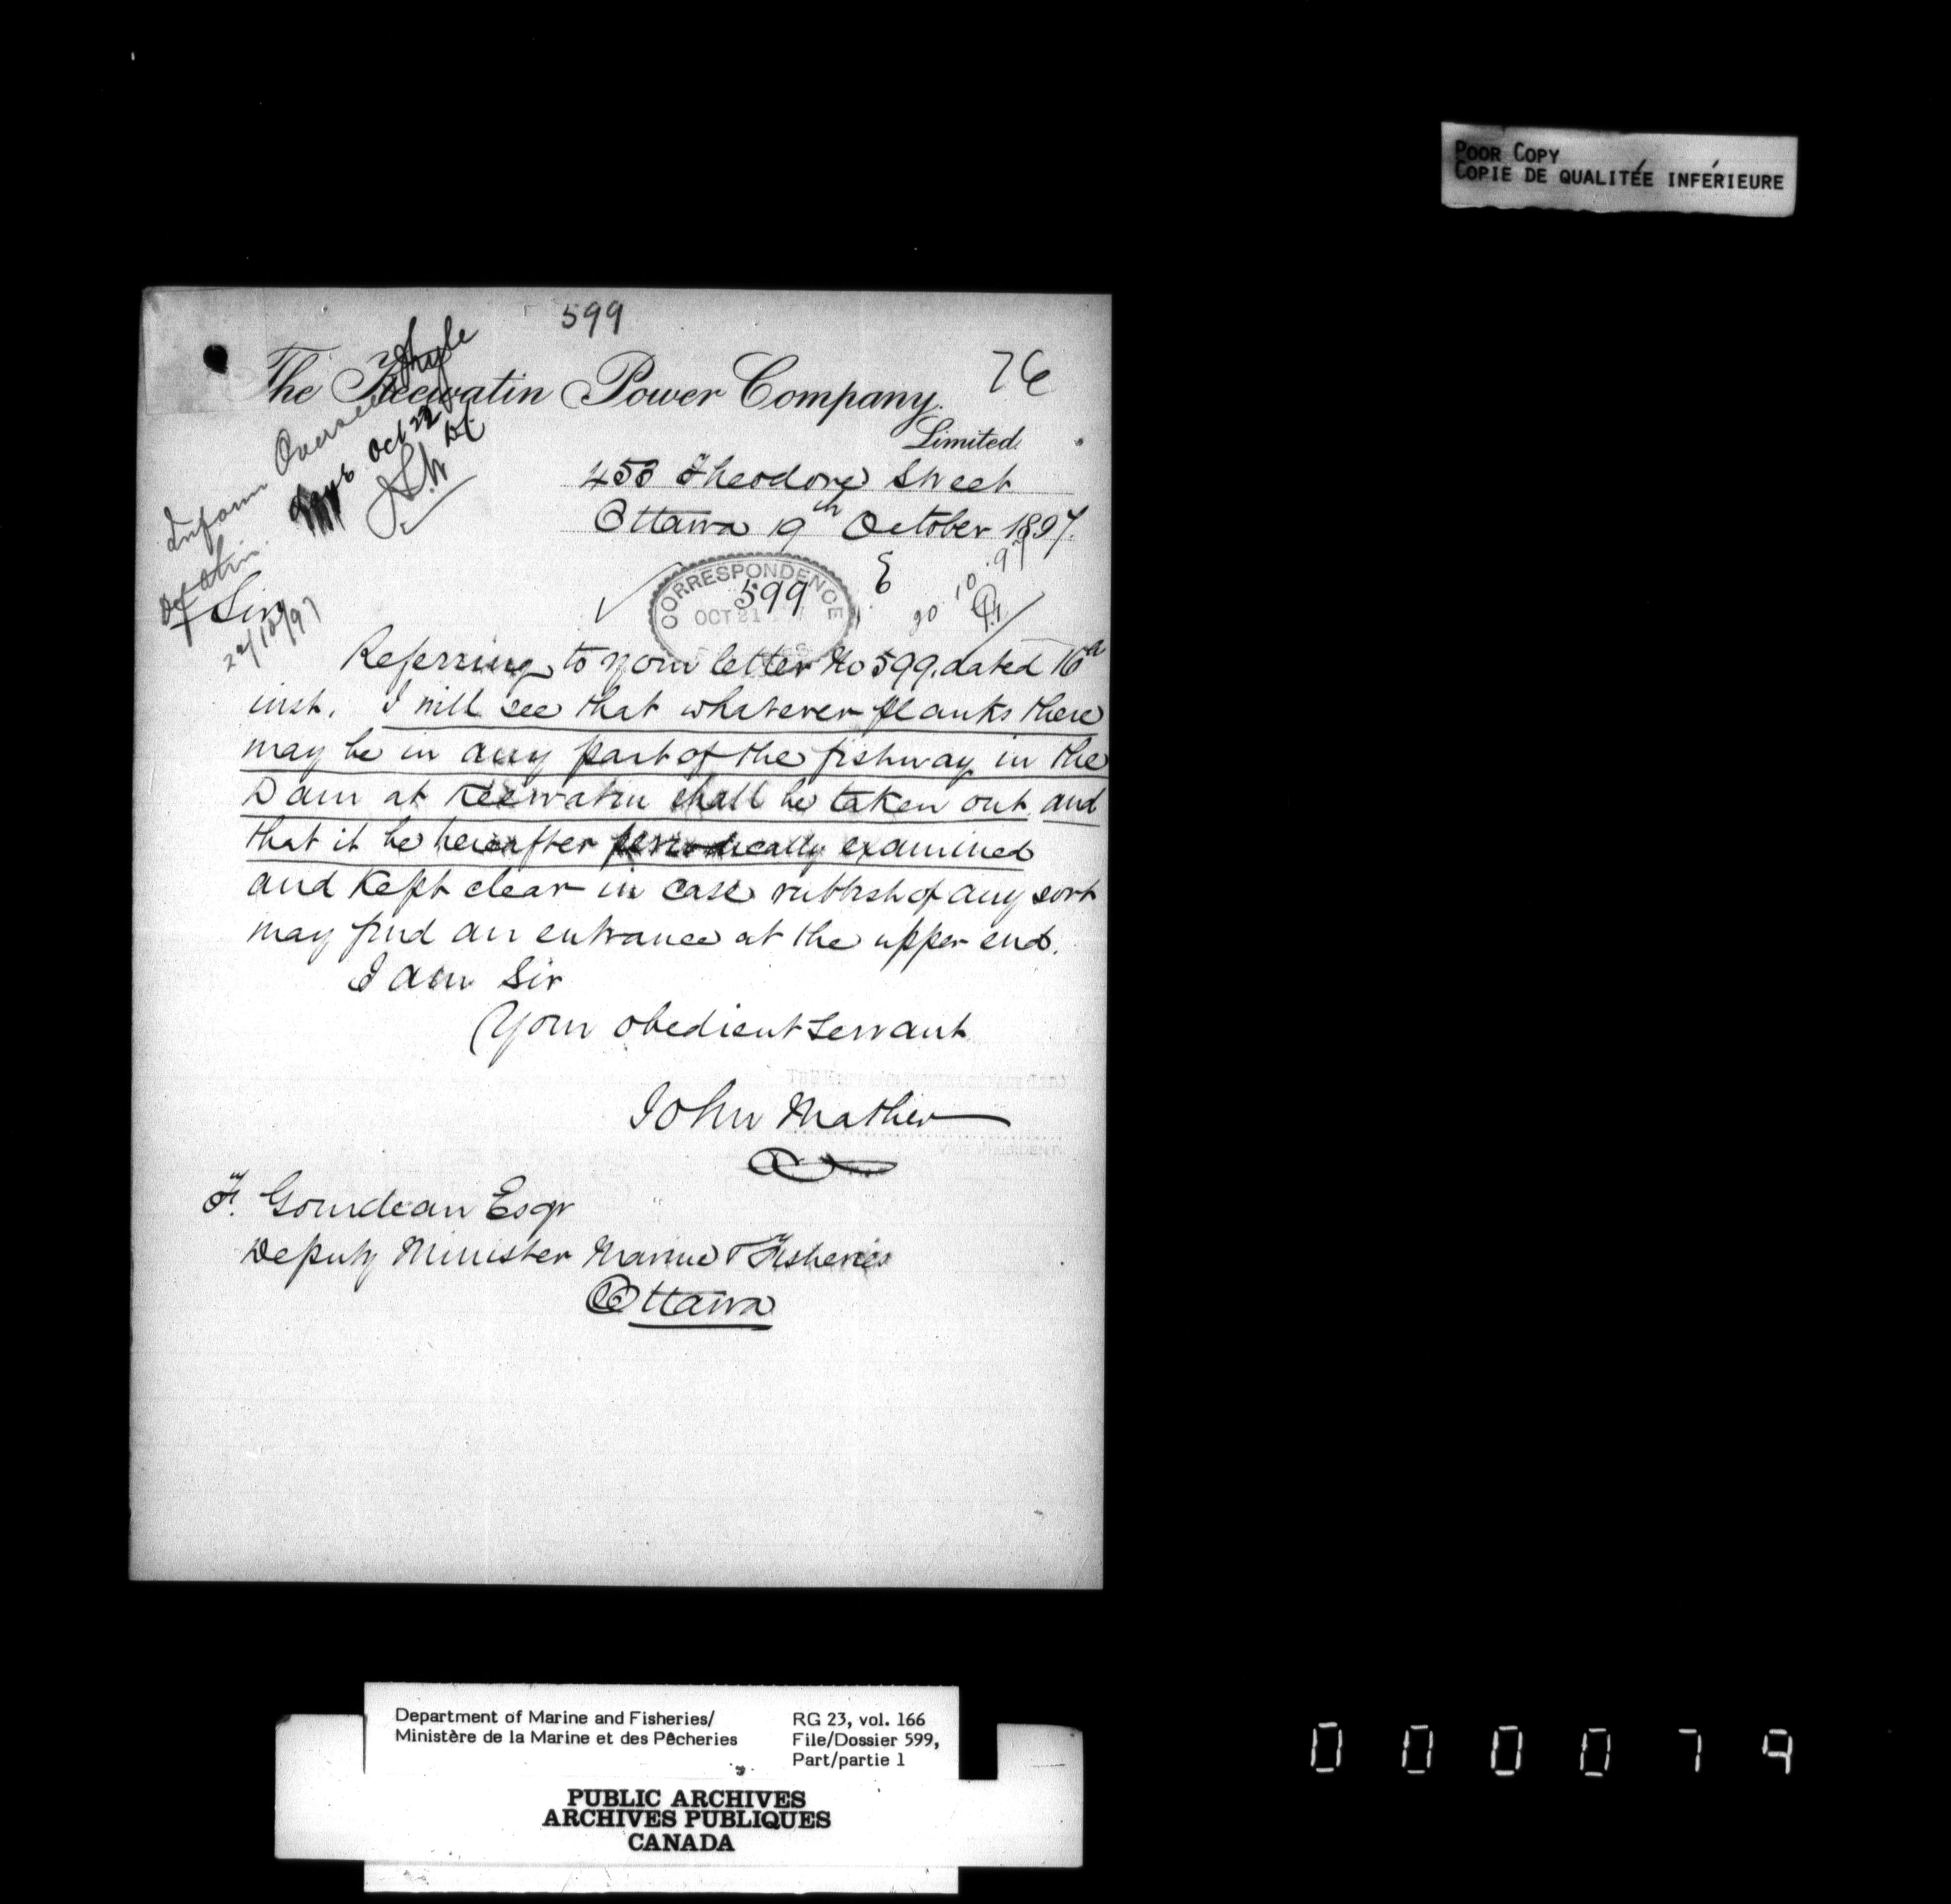 POOR COPY
COPIE DE QUALITÉE INFÉRIEURE
599
76
The Keewatin Power Company.
Limited.
Inform Overseer
Oct 22
22/10/97
453 Theodore Street
Ottawa 19th October 1897.
CORRESPONDENCE
599
OCT 21
20.10.97
Sir
Referring to your letter No 599. dated 16th
inst. I will see that whatever planks there
may be in any part of the fishway in the
Dam at Keewatin shall be taken out and
that it be hereafter periodically examined
and kept clear in case rubbish of any sort
may find an entrance at the upper end.
I am Sir
Your obedient Servant
John Mather
F. Gourdeau Esqr
Deputy Minister Marine & Fisheries
Ottawa
Department of Marine and Fisheries/
Ministère de la Marine et des Pêcheries
RG 23, vol. 166
File/Dossier 599,
Part/partie 1
PUBLIC ARCHIVES
ARCHIVES PUBLIQUES
CANADA
000079